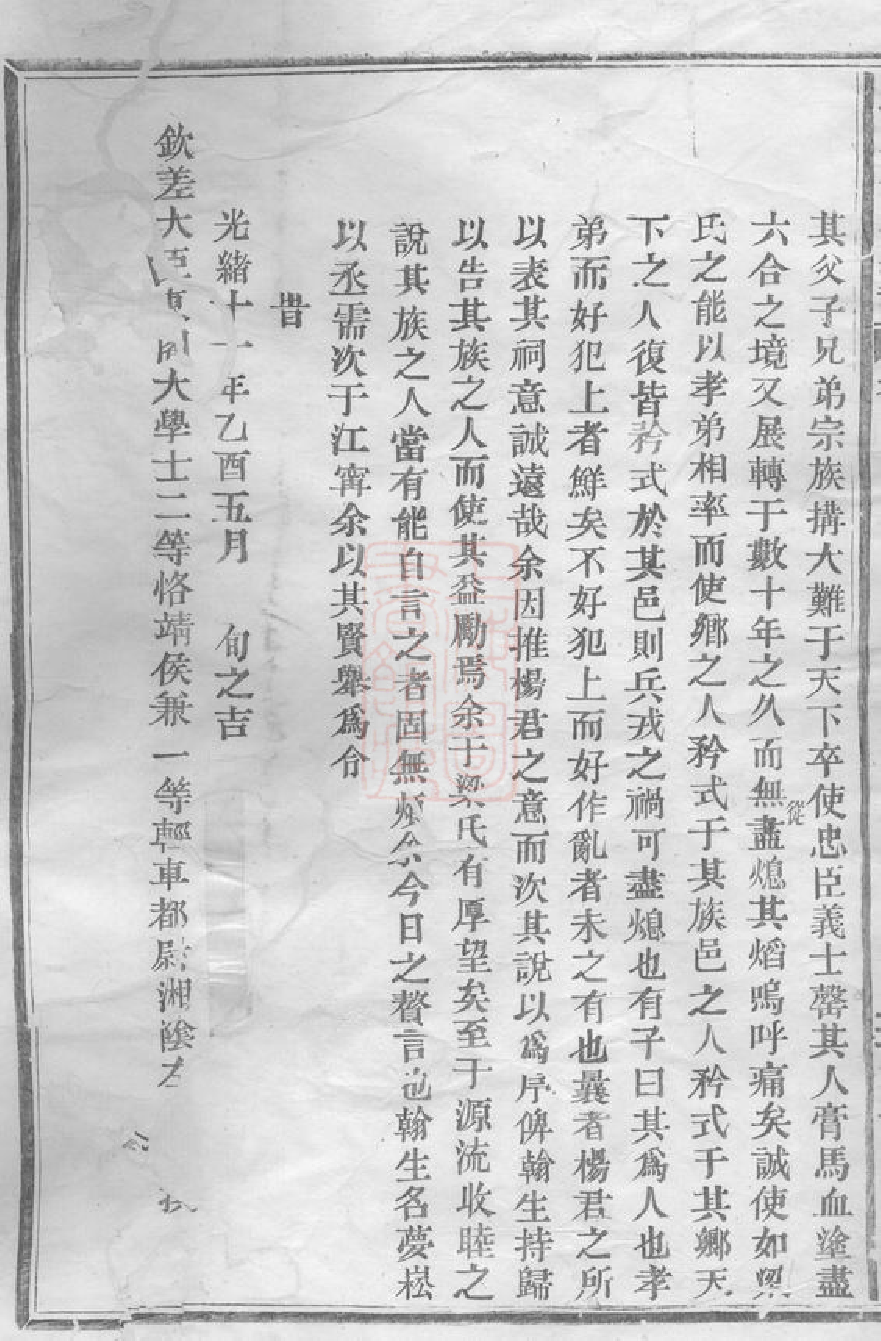 其父子兄弟宗族搆大難于天下卒使忠臣義士罄其人膏馬血塗盡
六合之境又展轉于數十年之久而無從盡熄其熖嗚呼痛矣誠使如梁
氏之能以孝弟相率而使鄉之人矜式于其族邑之人矜式于其鄉天
下之人復皆矜式於其邑則兵戎之禍可盡熄也有子曰其爲人也孝
弟而好犯上者鮮矣不好犯上而好作亂者未之有也曩者楊君之所
以表其祠意誠遠哉余因推楊君之意而次其說以爲序俾翰生持歸
以告其族之人而使其益勵焉余于梁氏有厚望矣至于源流收睦之
說其族之人當有能自言之者固無煩余今日之贅言也翰生名夢崧
以丞需次于江甯余以其賢舉爲令
旹
光緒十一年乙酉五月 旬之吉
欽差大臣東閣大學士二等恪靖侯兼一等輕車都尉湘陰左